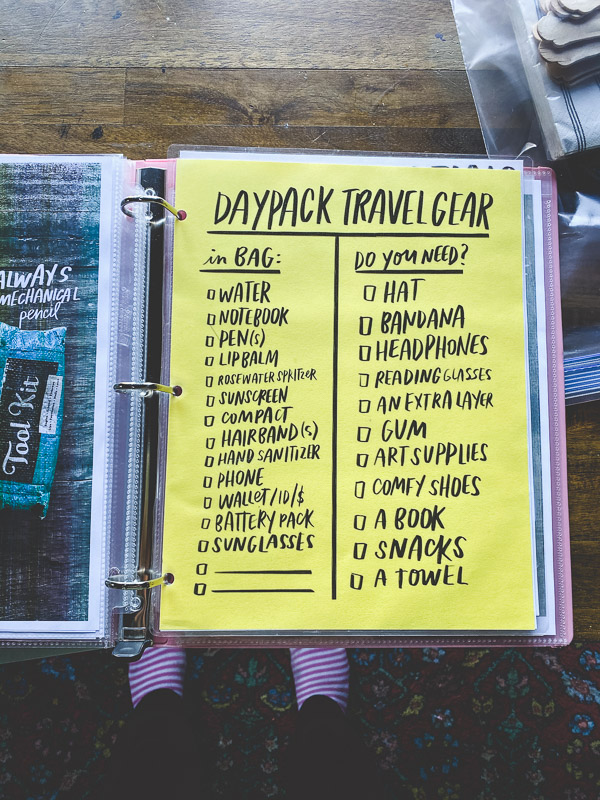 ALWAYS
MECHANICAL
pencil
Tool Kit
DAYPACK TRAVEL GEAR
in BAG:
WATER
NOTEBOOK
PEN(S)
LIP BALM
ROSEWATER SPRITZER
SUNSCREEN
COMPACT
HAIRBAND(S)
HAND SANITIZER
PHONE
WALLET/ID/$
BATTERY PACK
SUNGLASSES
DO YOU NEED?
HAT
BANDANA
HEADPHONES
READING GLASSES
AN EXTRA LAYER
GUM
ART SUPPLIES
COMFY SHOES
A BOOK
SNACKS
A TOWEL